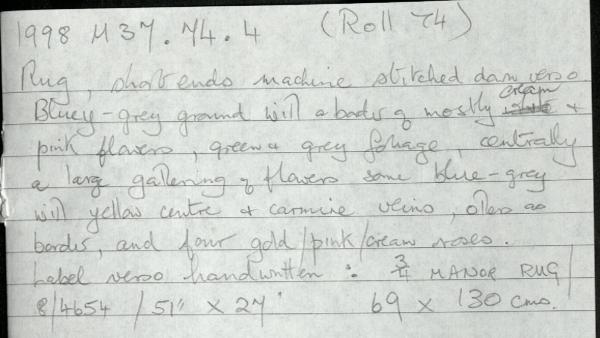 1998 M 37.74.4 (Roll 74)
Rug, short ends machine stitched down verso
Bluey-grey ground with a border of mostly cream &
pink flowers, green & grey foliage, centrally
a large gathering of flowers some blue-grey
with yellow centre & carmine veins, others as
border, and four gold/pink/cream roses.
Label verso handwritten : 3/4 MANOR RUG/
8/4654 / 51" x 27" 69 x 130 cms.